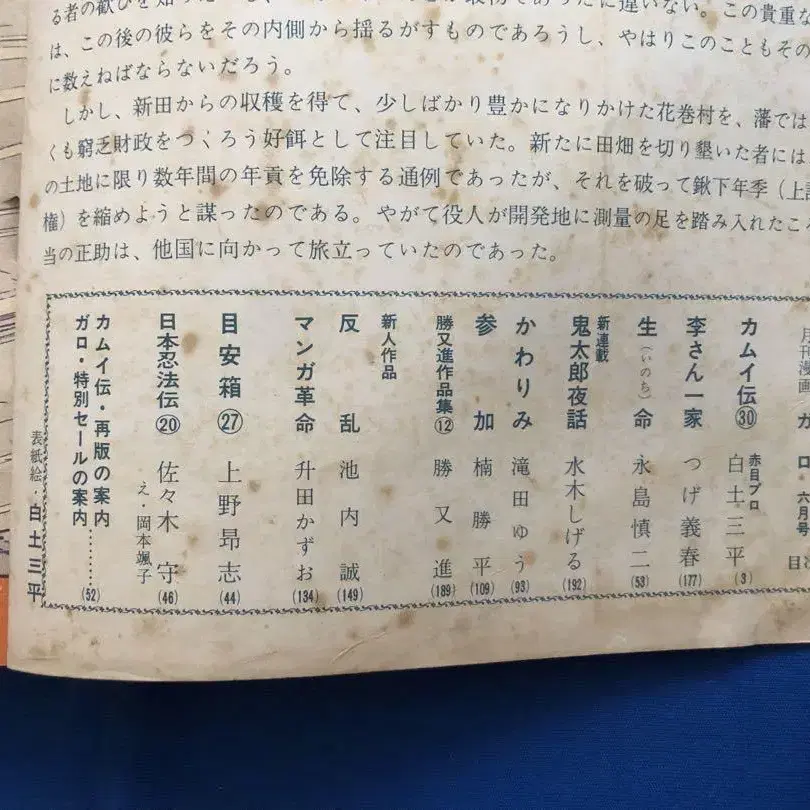 る者の歓びを知った
に違いない。この貴重な
は、この後の彼らをその内側から揺るがすものであろうし、やはりこのこともその
に数えねばならないだろう。
しかし、新田からの収穫を得て、少しばかり豊かになりかけた花巻村を、藩では
くも窮乏財政をつくろう好餌として注目していた。新たに田畑を切り墾いた者には
の土地に限り数年間の年貢を免除する通例であったが、それを破って鍬下年季（上
権）を縮めようと謀ったのである。やがて役人が開発地に測量の足を踏み入れたころ
当の正助は、他国に向かって旅立っていたのであった。
月刊漫画 ガロ・六月号 目次
カムイ伝㉚ 赤目プロ 白土三平 (3)
李さん一家 つげ義春 (177)
生（いのち）命 永島慎二 (53)
新連載
鬼太郎夜話 水木しげる (192)
かわりみ 滝田ゆう (93)
参加 楠勝平 (109)
勝又進作品集⑫ 勝又進 (189)
新人作品
反乱 池内誠 (149)
マンガ革命 升田かずお (134)
目安箱㉗ 上野昂志 (44)
日本忍法伝⑳ 佐々木守 (46)
え・岡本颯子
カムイ伝・再版の案内
ガロ・特別セールの案内………(52)
表紙絵・白土三平